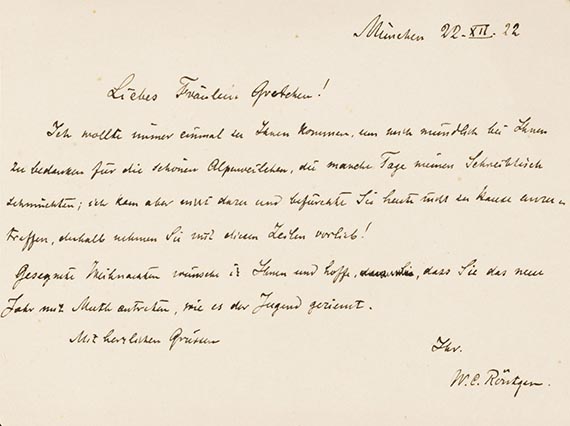 München 22.XII.22
Liebes Fräulein Gretchen!
Ich wollte immer einmal zu Ihnen kommen, um mich mündlich bei Ihnen
zu bedanken für die schönen Alpenveilchen, die manche Tage meinen Schreibtisch
schmückten; ich kam aber nicht dazu und befürchte Sie heute nicht zu Hause anzu-
treffen, deshalb nehmen Sie mit diesen Zeilen vorlieb!
Gesegnete Weihnachten wünsche ich Ihnen und hoffe, dass Sie das neue
Jahr mit Muth antreten, wie es der Jugend geziemt.
Mit herzlichen Grüssen
Ihr.
W. C. Röntgen.